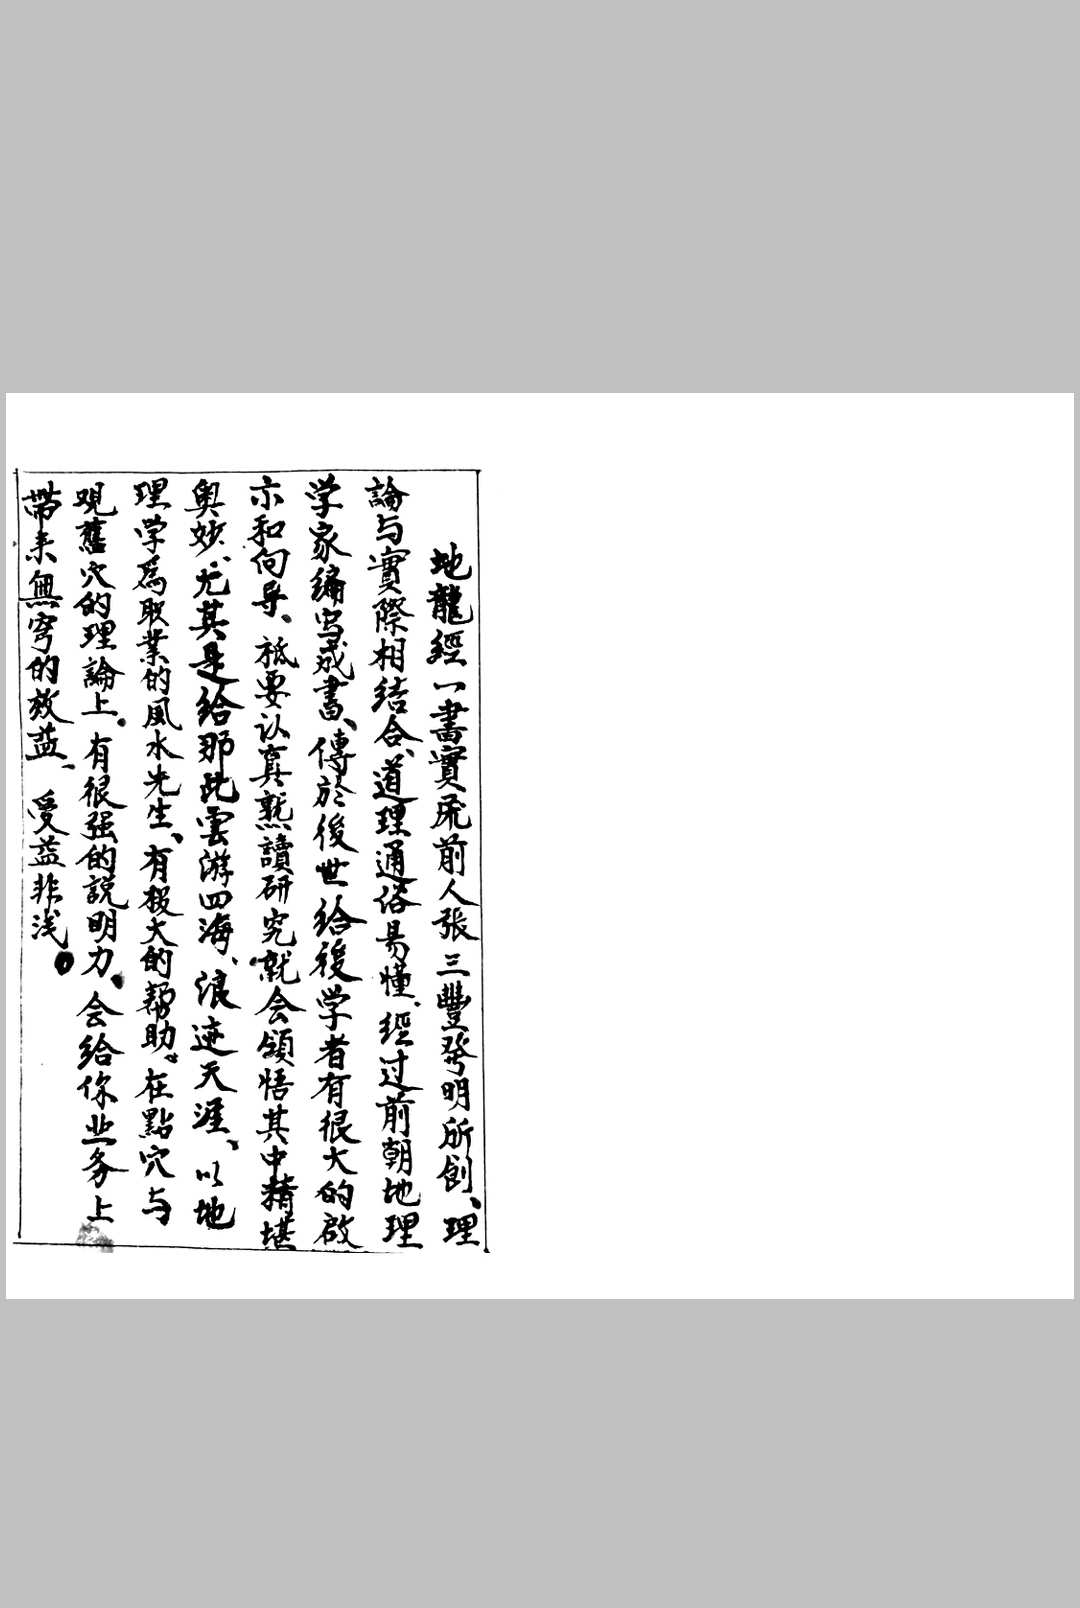 地龍經一書實屬前人張三豐發明所創、理
論与實際相结合、道理通俗易懂、經过前朝地理
学家編写成書、傳於後世给後学者有很大的啟
示和向导、祗要认真熟讀研究就会領悟其中精堪
奥妙、尤其是给那些雲游四海、浪迹天涯、以地
理学爲职業的風水先生、有极大的帮助。在點穴与
观舊穴的理論上。有很强的説明力。会给你业务上
带来無穷的效益、受益非浅。